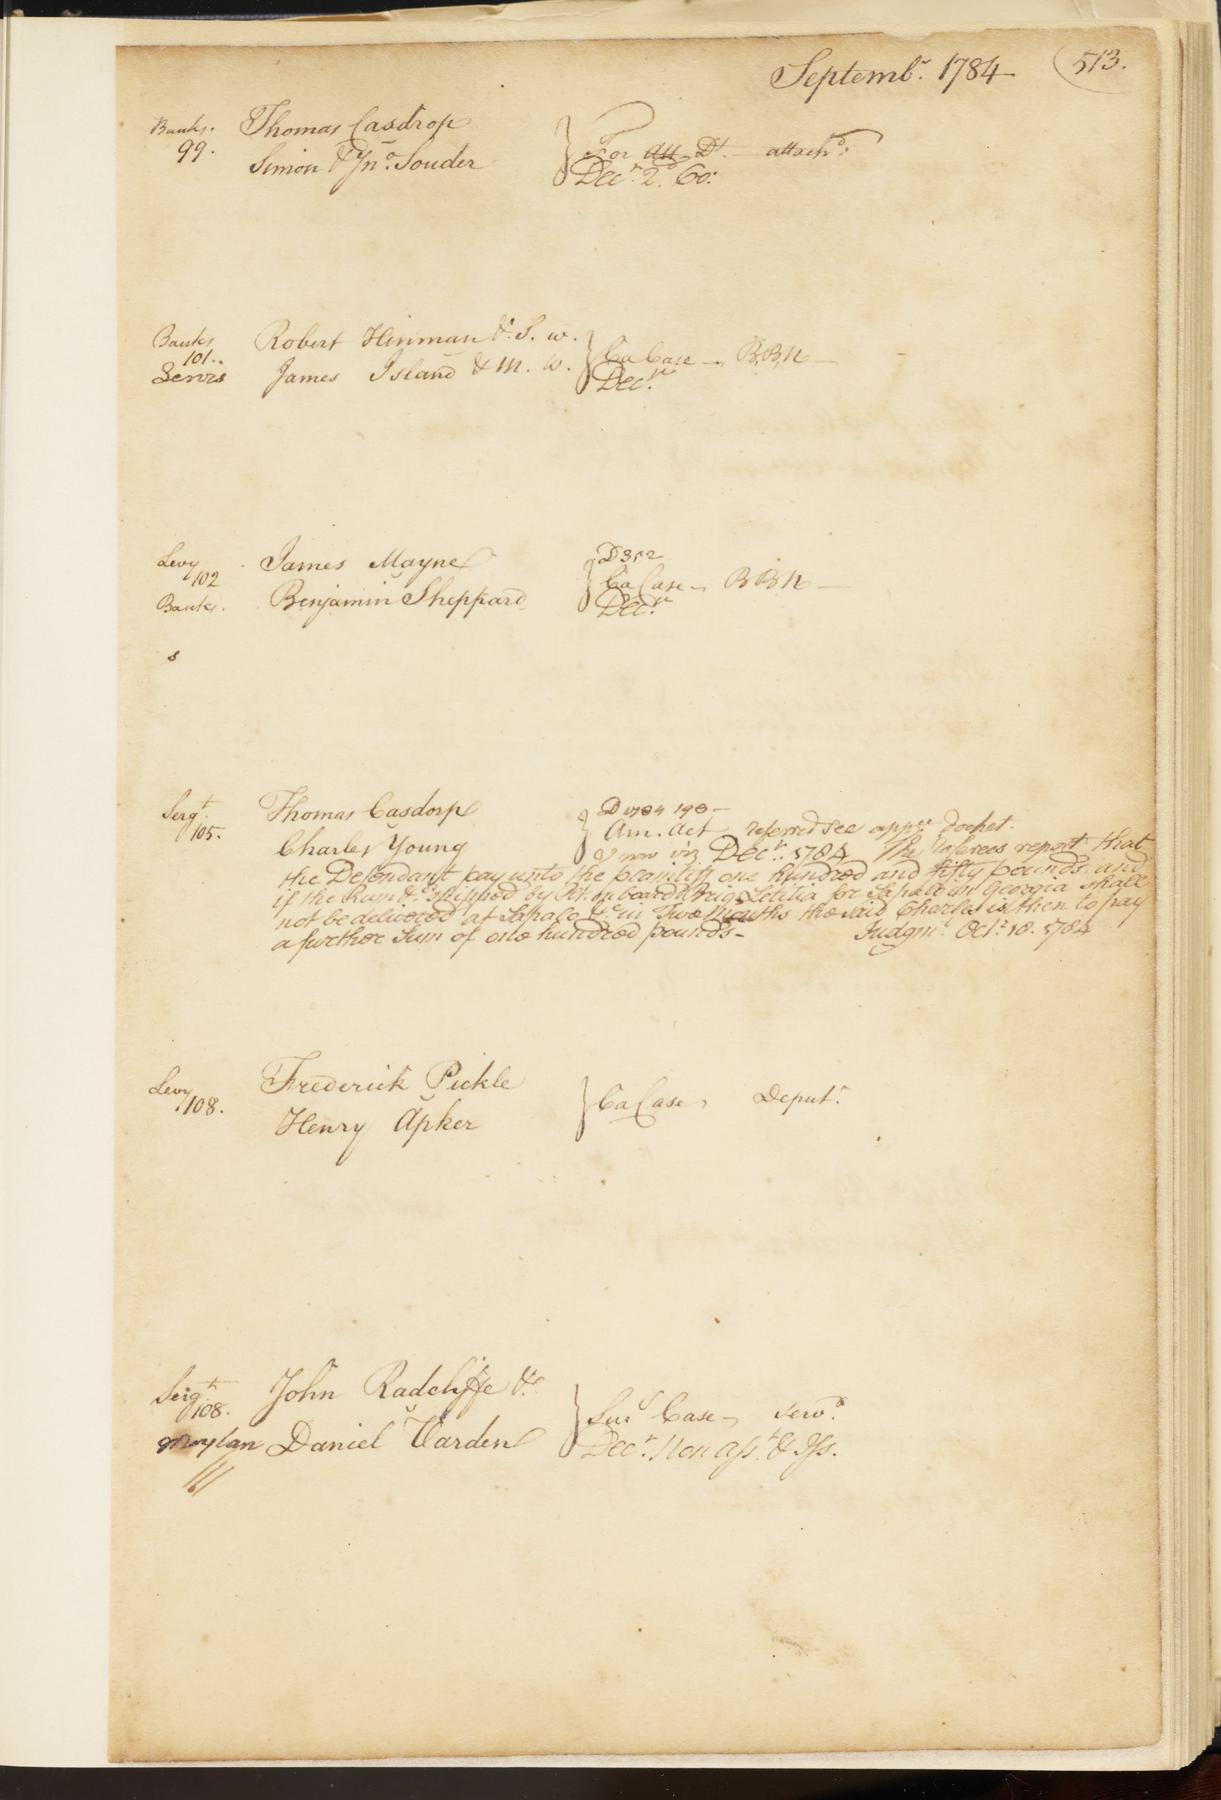 Septembr. 1784 513.
Banks. Thomas Casdrop
99. Simon & Jno. Souder
For att Dt. attachd.
Decr. 2d. Co:
Banks Robert Hinman & S. w.
101.
Servis James Island & M. w.
Ca Case B.B.n
Decr.
Levy James Mayne
102
Banks. Benjamin Sheppard
D 352
Ca Case B B n
Decr.
s
Sergt. Thomas Casdorp
105. Charles Young
D 1784 198
Am. act referred see appe. docket.
& now viz Decr. 1784 The referees report that
the Defendant pay unto the plaintiff one hundred and fifty pounds and
if the Rum &c shipped by Plt. on board Brig Letitia for Sapalo in Georgia shall
not be delivered at Sapalo &c in Two Months the said Charles is then to pay
a further Sum of one hundred pounds- Judgmt. Oct: 10. 1784
Levy Frederick Pickle
108. Henry Apker
Ca Case Deput.
Sergt. John Radcliffe &c
108.
Moylan Daniel Varden
Case servd.
Decr. Non Ass. & Iss.